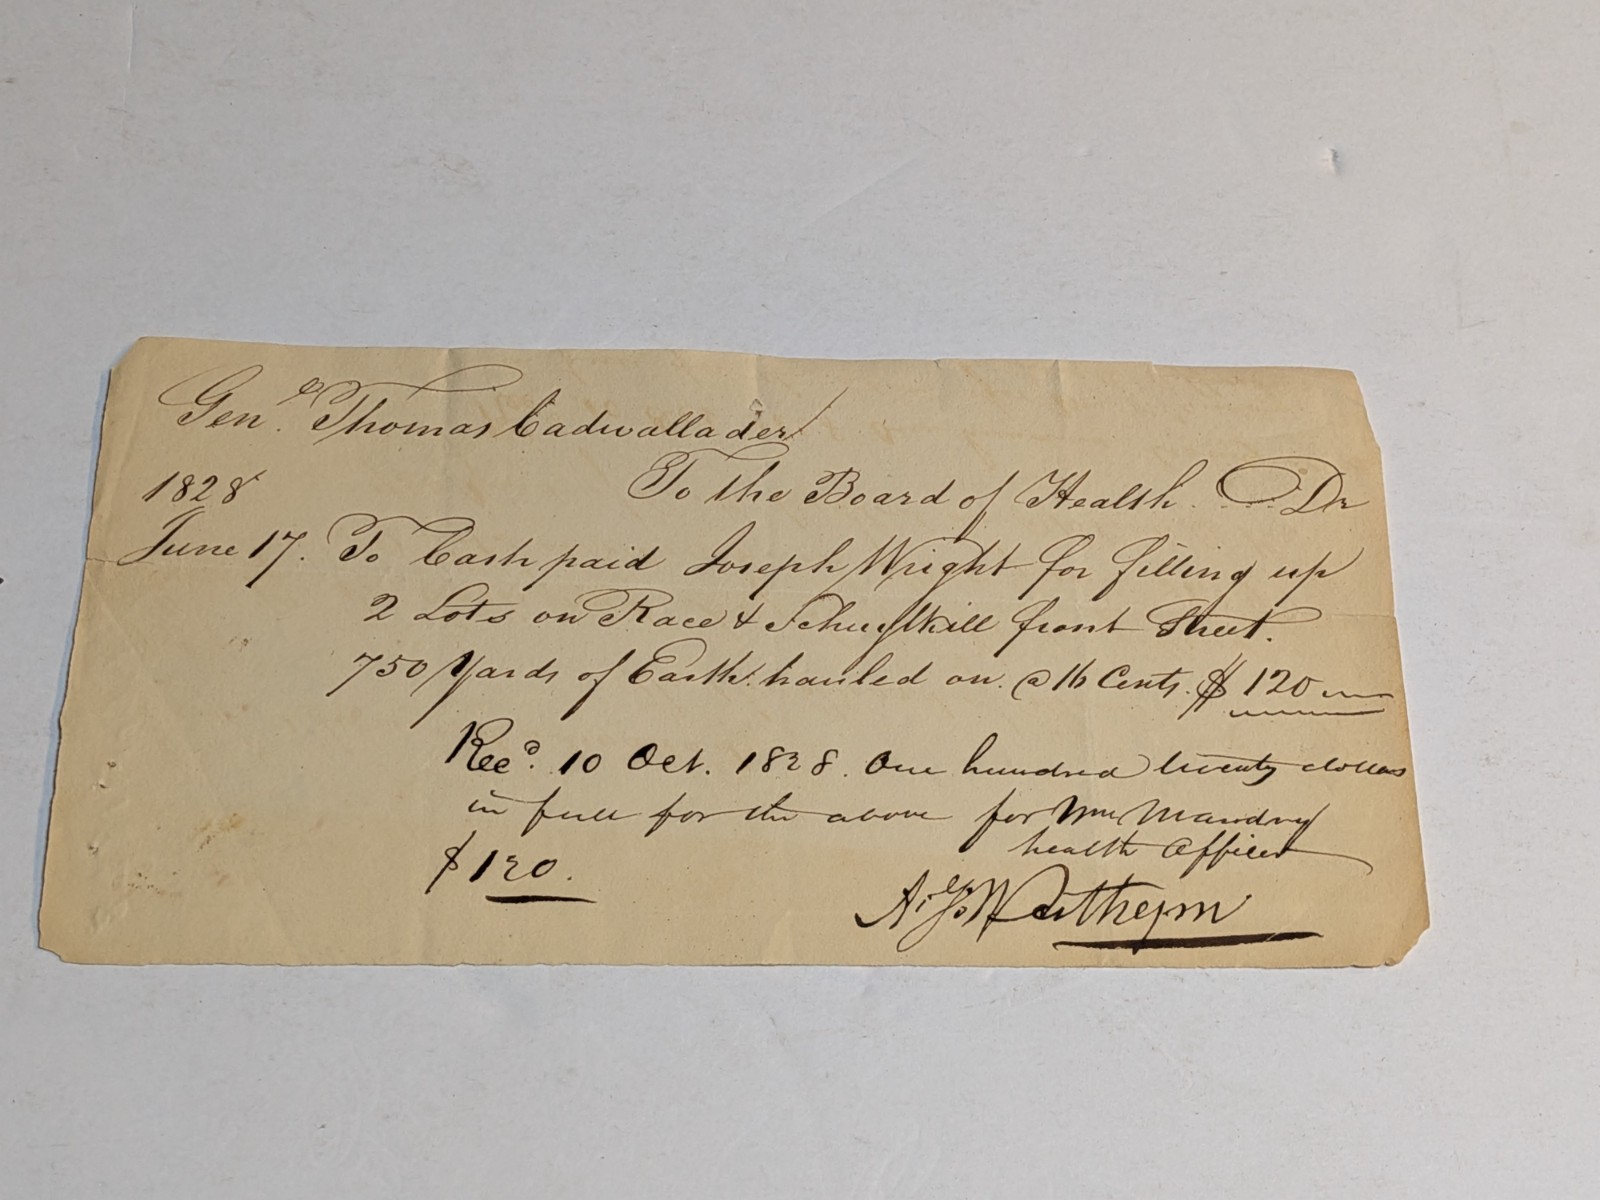 Genl. Thomas Cadwallader
To the Board of Health. Dr
1828
June 17. To Cash paid Joseph Wright for filling up
2 Lots on Race & Schuylkill front Street.
750 Yards of Earth hauled on. @ 16 Cents. $ 120
Recd. 10 Oct. 1828. One hundred twenty dollars
in full for the above for Wm Mandry
health Officer
$120.